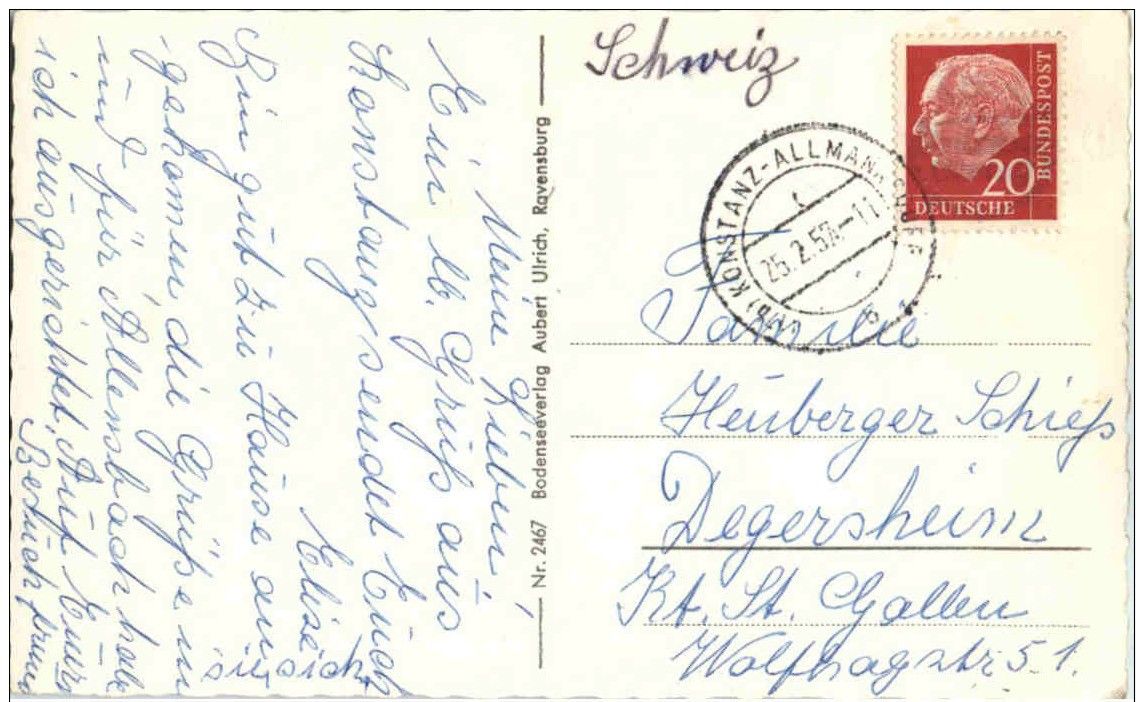 Meine Lieben!
Ein lb. Gruß aus
Konstanz sendet Euch
Elise
Bin gut zu Hause an-
gekommen die Grüße in
und für Allensbach habe
ich ausgerichtet. Auf Euren
Besuch freuen
sie sich.
Nr. 2467 Bodenseeverlag Aubert Ulrich, Ravensburg
Schweiz
DEUTSCHE BUNDESPOST
20
KONSTANZ-ALLMANNSDORF
25.2.57.-11
b
Familie
Heuberger Schieß
Degersheim
Kt. St. Gallen
Wolfhagstr. 51.